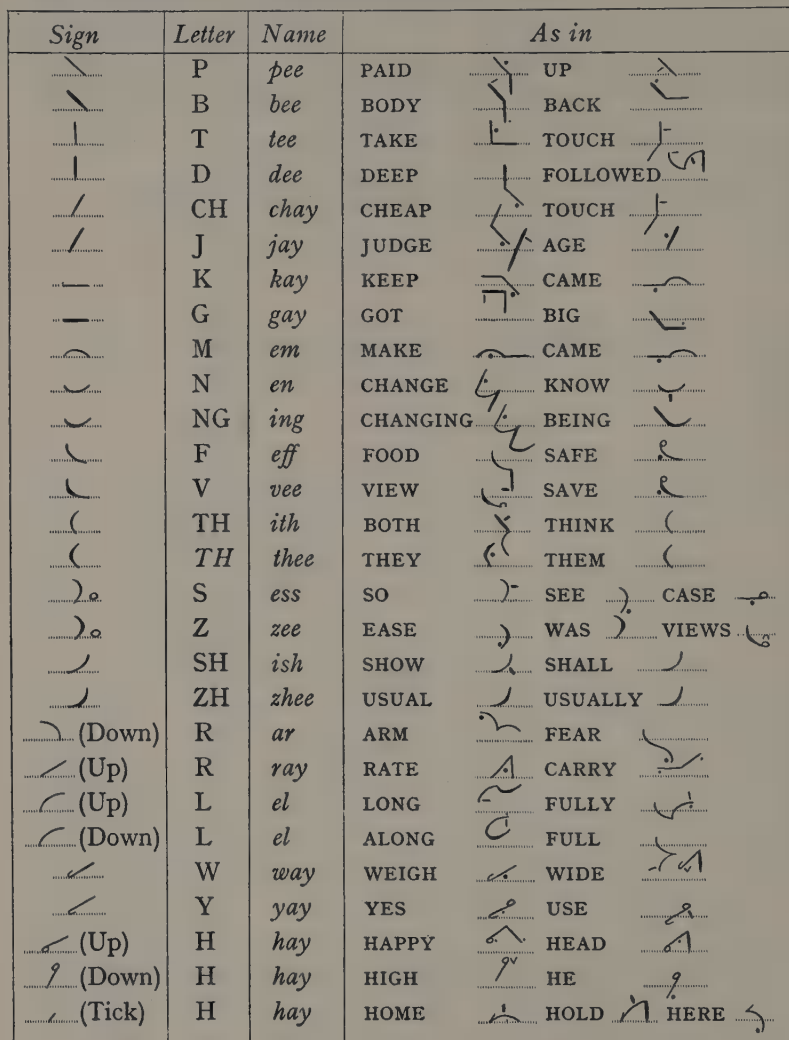 Sign Letter Name As in
P pee PAID UP
B bee BODY BACK
T tee TAKE TOUCH
D dee DEEP FOLLOWED
CH chay CHEAP TOUCH
J jay JUDGE AGE
K kay KEEP CAME
G gay GOT BIG
M em MAKE CAME
N en CHANGE KNOW
NG ing CHANGING BEING
F eff FOOD SAFE
V vee VIEW SAVE
TH ith BOTH THINK
TH thee THEY THEM
S ess SO SEE CASE
Z zee EASE WAS VIEWS
SH ish SHOW SHALL
ZH zhee USUAL USUALLY
(Down) R ar ARM FEAR
(Up) R ray RATE CARRY
(Up) L el LONG FULLY
(Down) L el ALONG FULL
W way WEIGH WIDE
Y yay YES USE
(Up) H hay HAPPY HEAD
(Down) H hay HIGH HE
(Tick) H hay HOME HOLD HERE